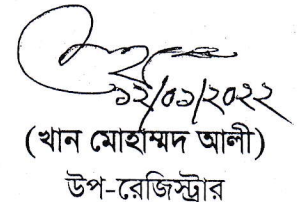 ১২/০১/২০২২
(খান মোহাম্মদ আলী)
উপ-রেজিস্ট্রার